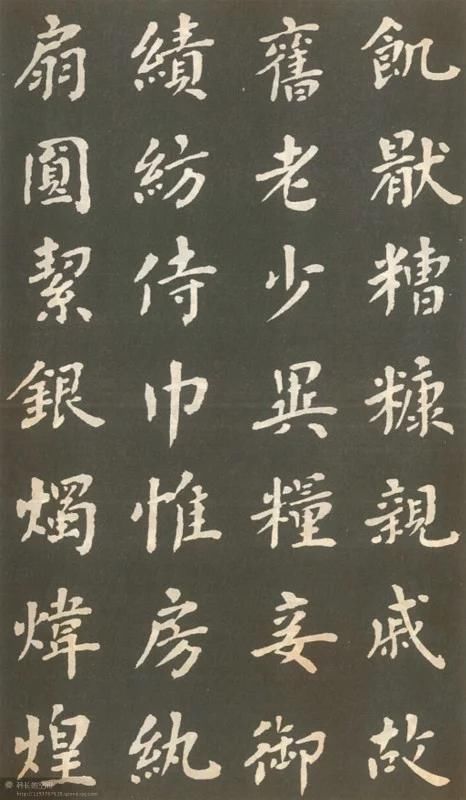 飢猒糟糠親戚故
舊老少異糧妾御
績紡侍巾惟房紈
扇圓絜銀燭煒煌
科长的空间